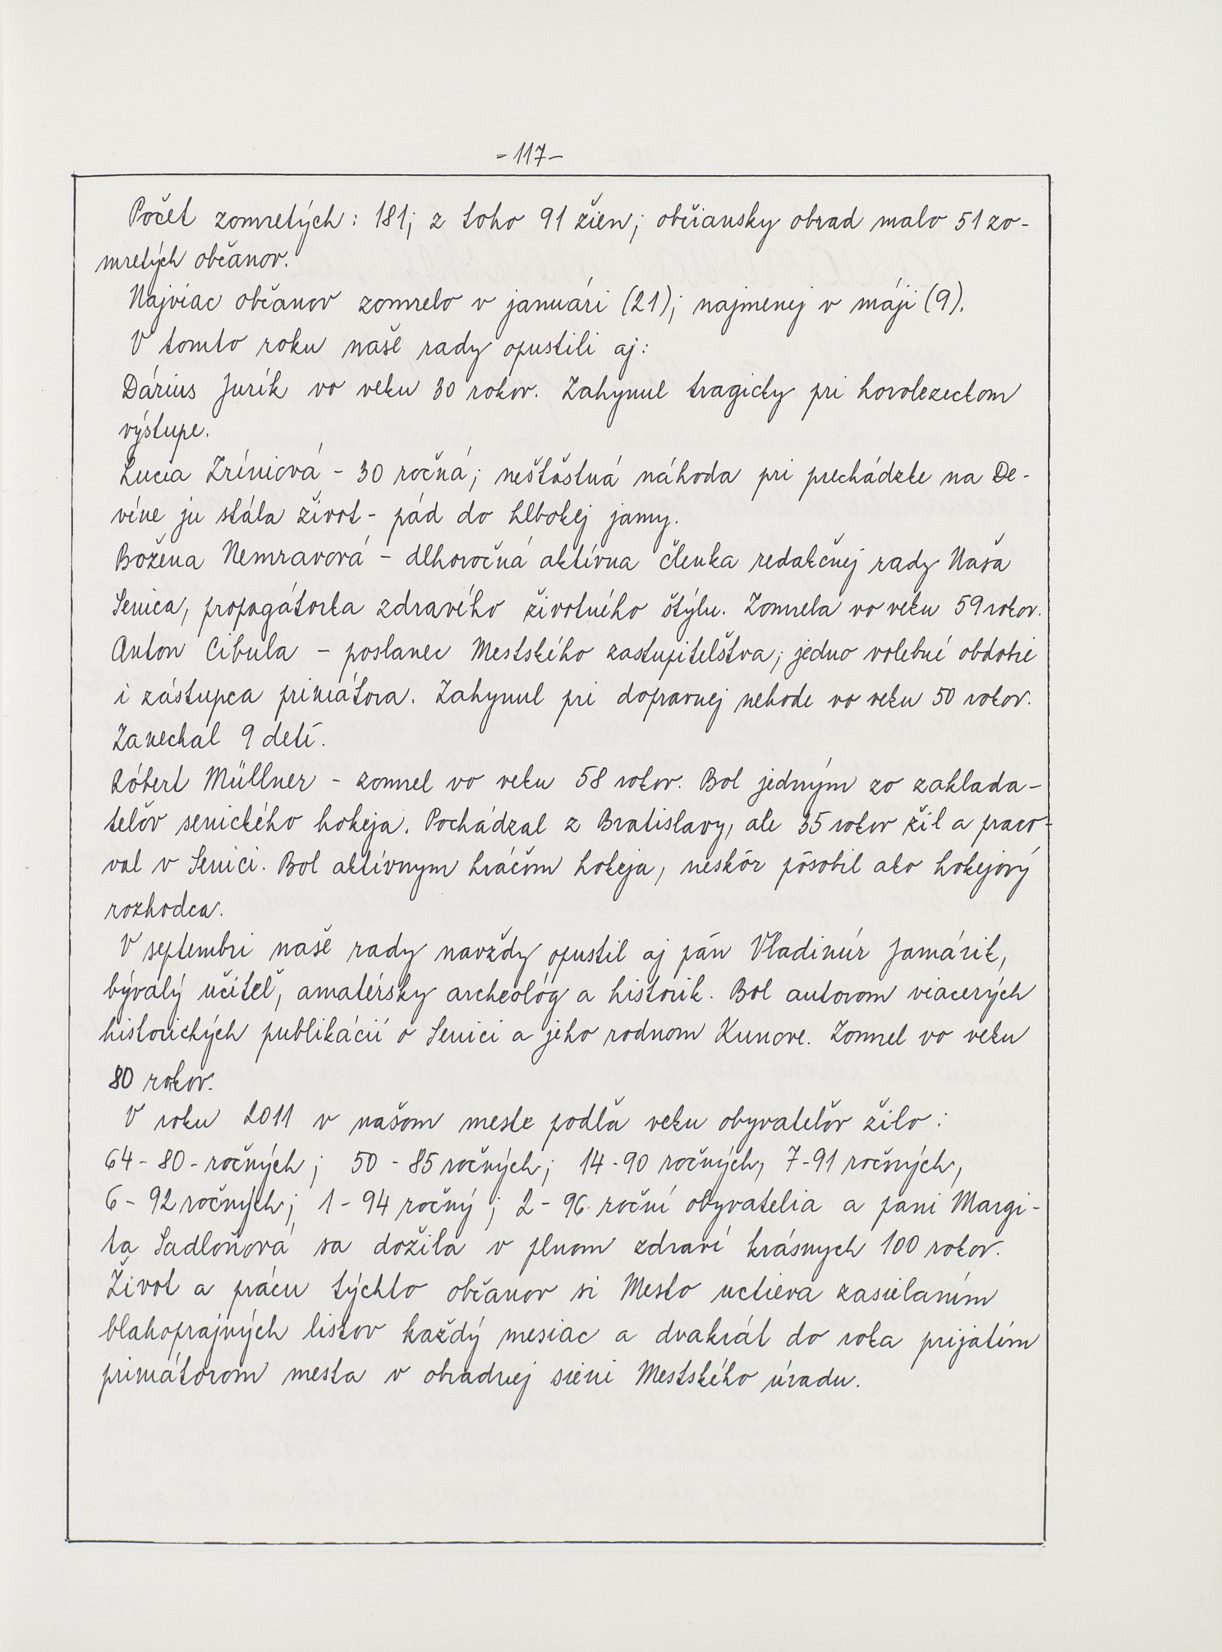 -117-
Počet zomretých: 181; z toho 91 žien; občiansky obrad malo 51 zo-
mretých občanov.
Najviac občanov zomrelo v januári (21); najmenej v máji (9).
V tomto roku naše rady opustili aj:
Dárius Jurík vo veku 30 rokov. Zahynul tragicky pri horolezeckom
výstupe.
Lucia Zríniová - 30 ročná; nešťastná náhoda pri prechádzke na De-
víne ju stála život - pád do hlbokej jamy.
Božena Nemravová - dlhoročná aktívna členka redakčnej rady Naša
Senica, propagátorka zdravého životného štýlu. Zomrela vo veku 59 rokov.
Anton Cibula - poslanec Mestského zastupiteľstva; jedno volebné obdobie
i zástupca primátora. Zahynul pri dopravnej nehode vo veku 50 rokov.
Zanechal 9 detí.
Róbert Müllner - zomrel vo veku 58 rokov. Bol jedným zo zaklada-
teľov senického hokeja. Pochádzal z Bratislavy, ale 35 rokov žil a praco-
val v Senici. Bol aktívnym hráčom hokeja, neskôr pôsobil ako hokejový
rozhodca.
V septembri naše rady navždy opustil aj pán Vladimír Jamárik,
bývalý učiteľ, amatérsky archeológ a historik. Bol autorom viacerých
historických publikácií o Senici a jeho rodnom Kunove. Zomrel vo veku
80 rokov.
V roku 2011 v našom meste podľa veku obyvateľov žilo:
64 - 80-ročných; 50 - 85 ročných; 14 - 90 ročných, 7-91 ročných,
6 - 92 ročných; 1 - 94 ročný; 2 - 96 roční obyvatelia a pani Margi-
ta Sadloňová sa dožila v plnom zdraví krásnych 100 rokov.
Život a prácu týchto občanov si Mesto uctieva zasielaním
blahoprajných listov každý mesiac a dvakrát do roka prijatím
primátorom mesta v obradnej sieni Mestského úradu.